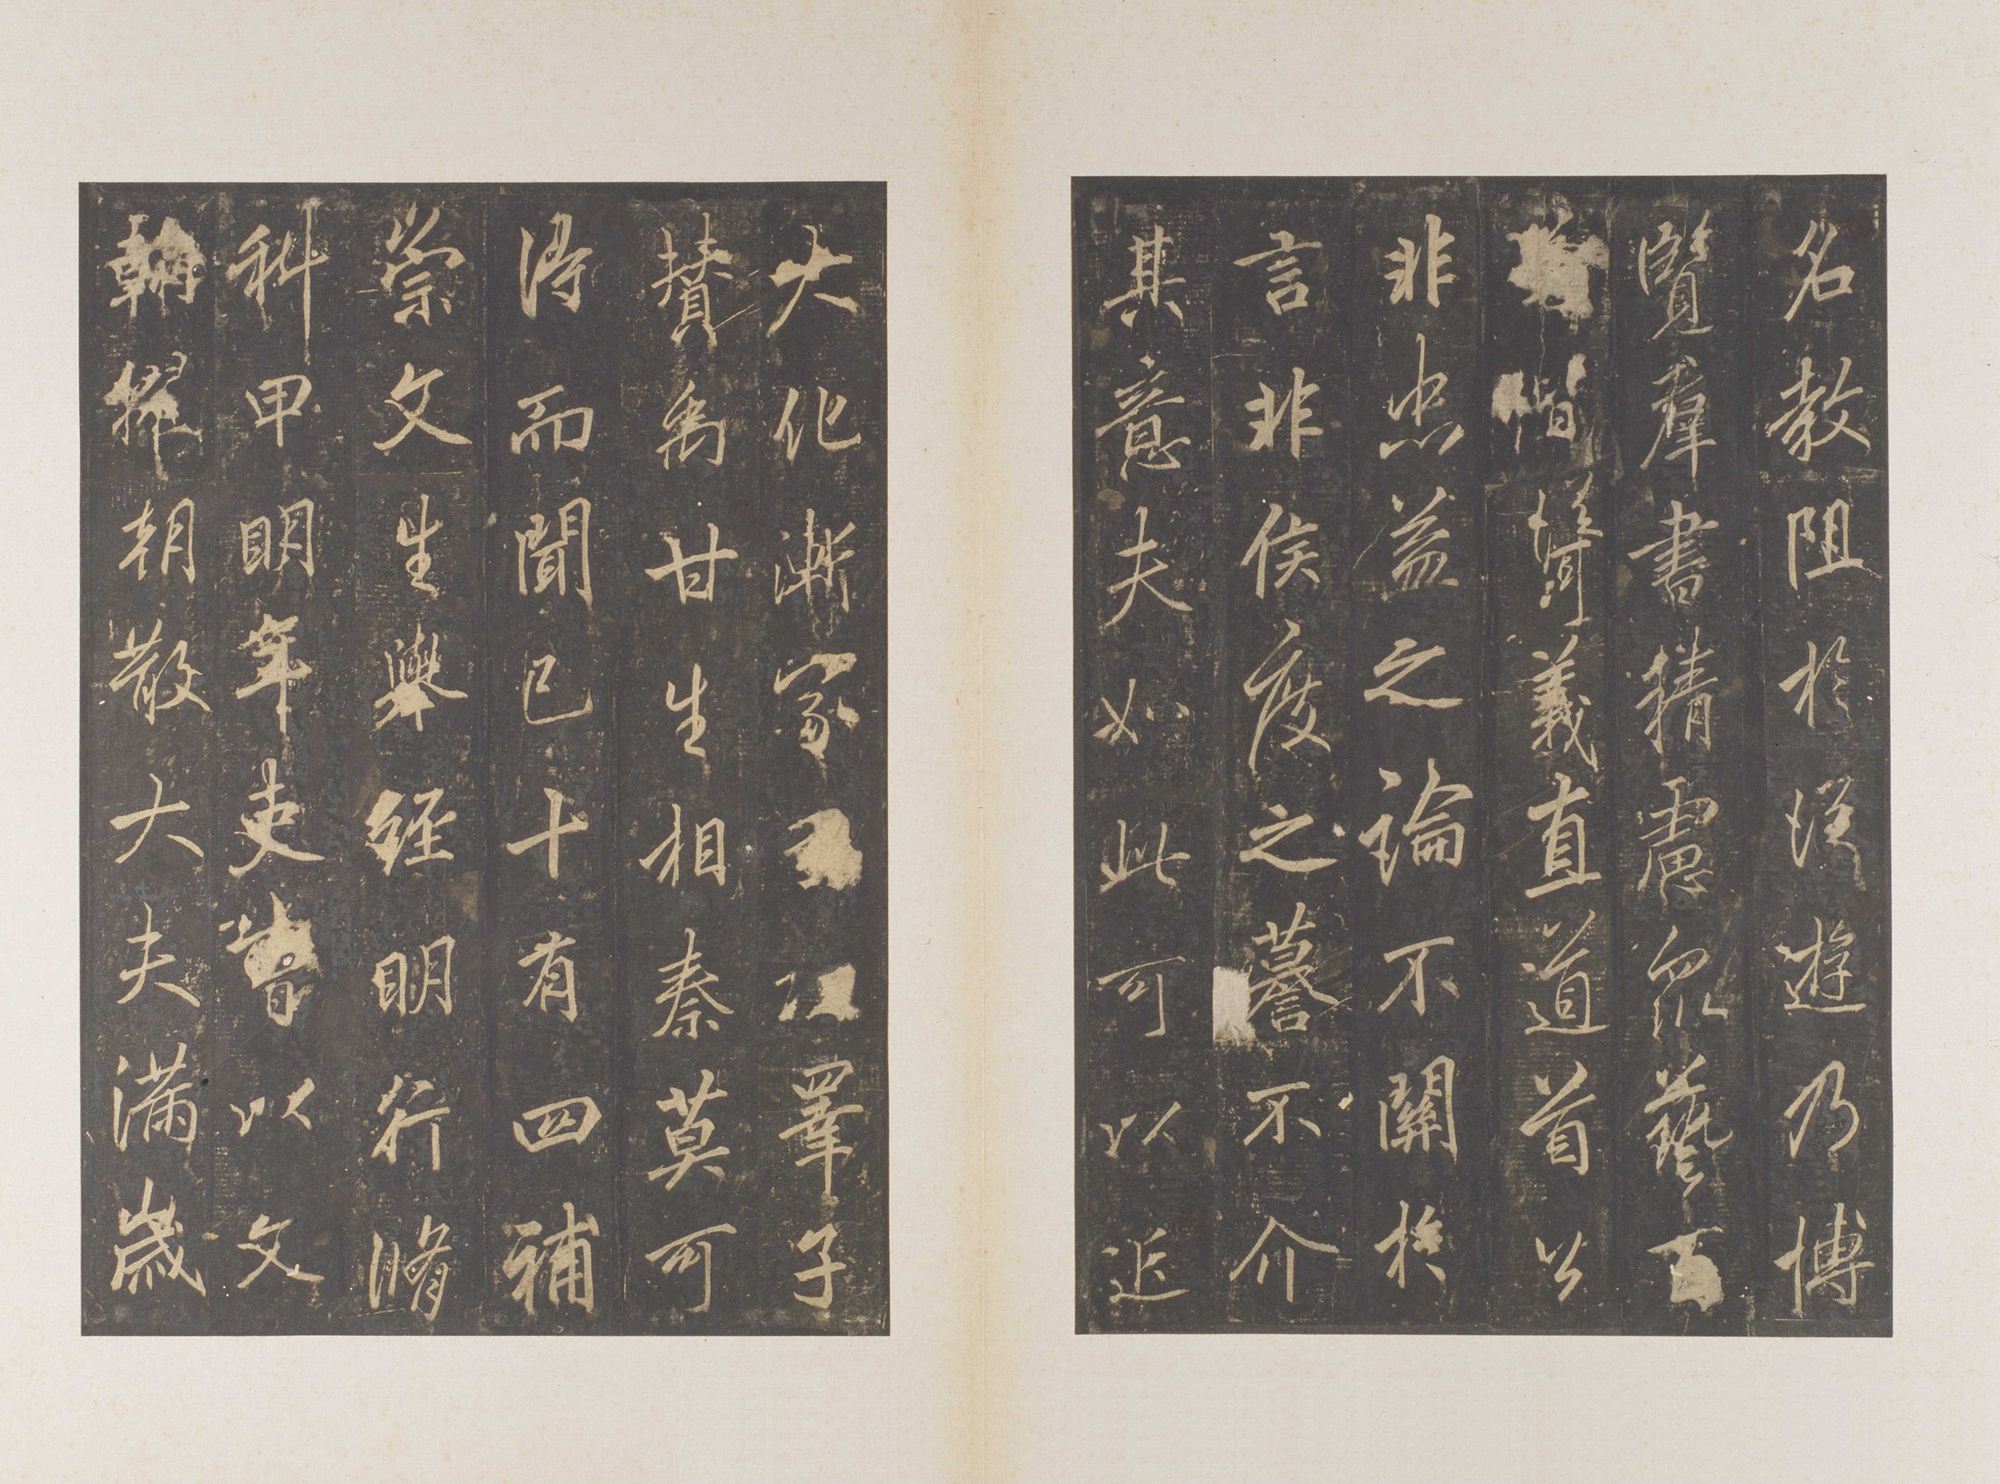 名教阻於從遊乃博
覽羣書精慮眾藝百
偕慕義直道首公
非忠益之論不關於
言非侯度之謩不介
其意夫如此可以近
大化漸家睪子
賛禹甘生相秦莫可
得而聞已十有四補
崇文生舉經明行脩
科甲明年吏皆以文
翰擢朝散大夫滿歲